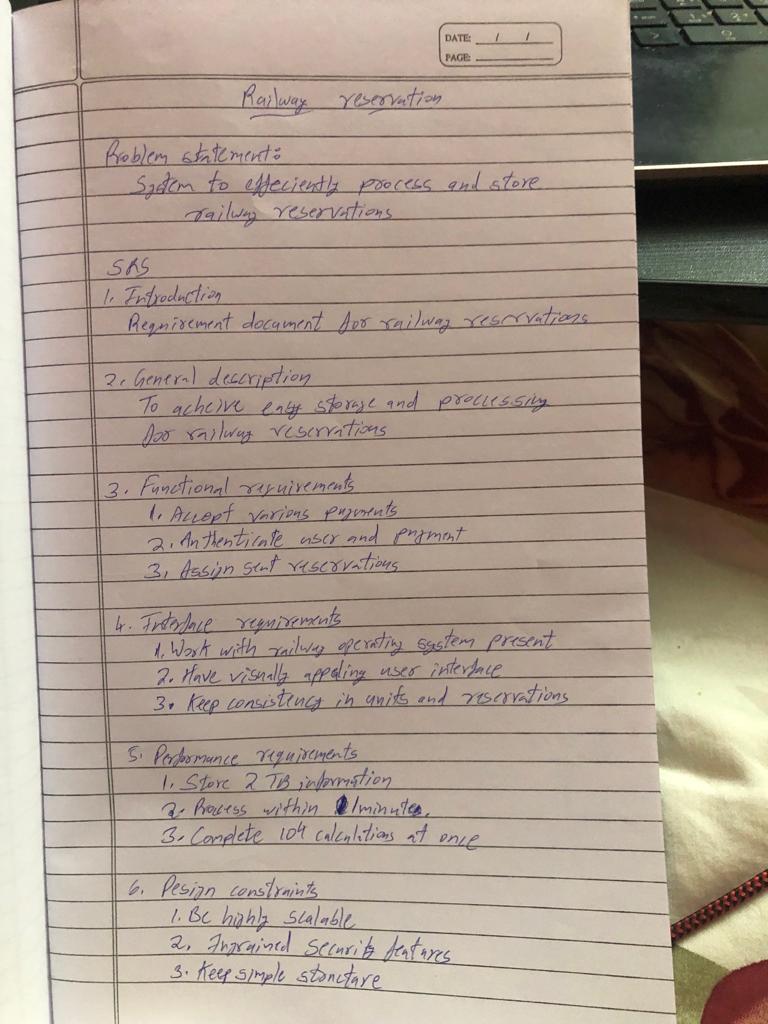 DATE: / /
PAGE:
Railway reservation
Problem statement:
System to effeciently process and store
railway reservations
SRS
1. Introduction
Requirement document for railway reservations
2. General description
To acheive easy storage and processing
for railway reservations
3. Functional requirements
1. Accept various payments
2. Authenticate user and payment
3. Assign seat reservations
4. Interface requirements
1. Work with railway operating system present
2. Have visually appealing user interface
3. Keep consistency in units and reservations
5. Performance requirements
1. Store 2 TB information
2. Process within 1 minute.
3. Complete 104 calculations at once
6. Design constraints
1. Be highly scalable
2. Ingrained security features
3. Keep simple structure